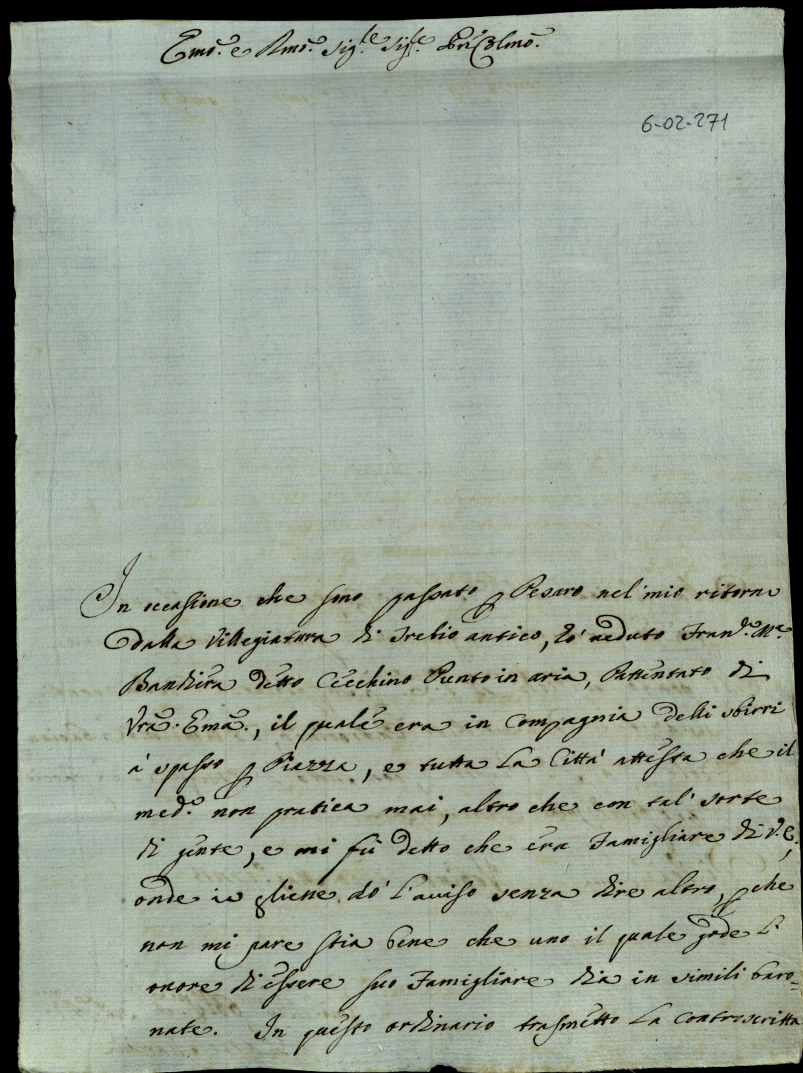 Emo. e Rmo. Sig.le Sig.le Pñ Colmo.
6-02-271
In occasione che sono passato p Pesaro nel' mio ritorno
dalla Villegiatura di Trebio antico, hò ueduto Fran.co M.a
Bandiera detto Cecchino Punto in aria, Pattentato di
Vrã. Emã., il quale era in Compagnia delli sbirri
à spasso p Piazza, e tutta La Città attesta che il
med.o non pratica mai, altro che con tal' sorte
di gente, e mi fù detto che era Famigliare di V.E.,
onde io gliene dò L'auiso senza dire altro, p che
non mi pare stia bene che uno il quale gode L'
onore di essere suo Famigliare dia in simili baro=
nate. In questo ordinario trasmetto La Controscritta